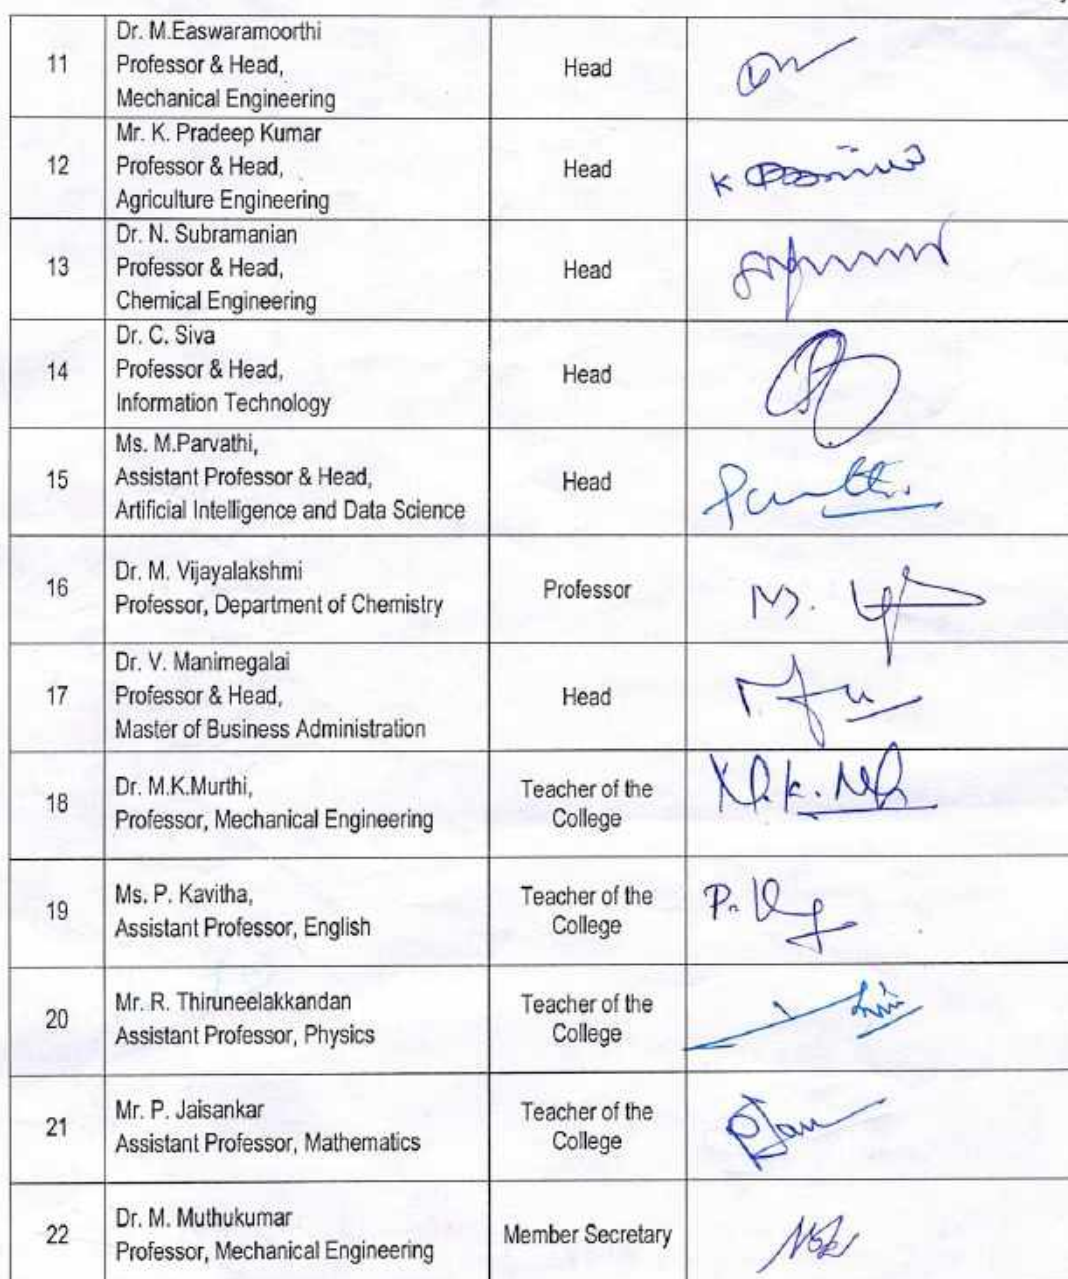 11
Dr. M.Easwaramoorthi
Professor & Head,
Mechanical Engineering
Head
12
Mr. K. Pradeep Kumar
Professor & Head,
Agriculture Engineering
Head
13
Dr. N. Subramanian
Professor & Head,
Chemical Engineering
Head
14
Dr. C. Siva
Professor & Head,
Information Technology
Head
15
Ms. M.Parvathi,
Assistant Professor & Head,
Artificial Intelligence and Data Science
Head
16
Dr. M. Vijayalakshmi
Professor, Department of Chemistry
Professor
17
Dr. V. Manimegalai
Professor & Head,
Master of Business Administration
Head
18
Dr. M.K.Murthi,
Professor, Mechanical Engineering
Teacher of the
College
19
Ms. P. Kavitha,
Assistant Professor, English
Teacher of the
College
20
Mr. R. Thiruneelakkandan
Assistant Professor, Physics
Teacher of the
College
21
Mr. P. Jaisankar
Assistant Professor, Mathematics
Teacher of the
College
22
Dr. M. Muthukumar
Professor, Mechanical Engineering
Member Secretary